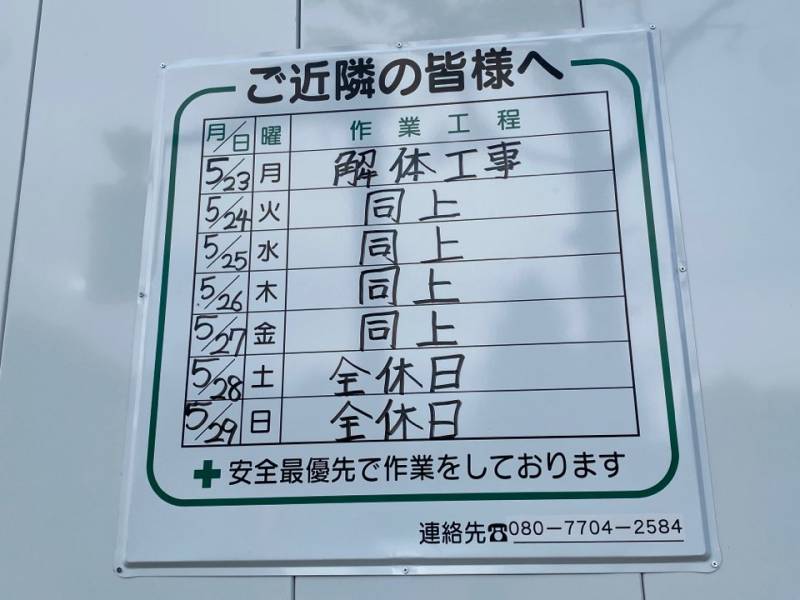 ご近隣の皆様へ
月/日 曜 作業工程
5/23 月 解体工事
5/24 火 同上
5/25 水 同上
5/26 木 同上
5/27 金 同上
5/28 土 全休日
5/29 日 全休日
安全最優先で作業をしております
連絡先☎080-7704-2584